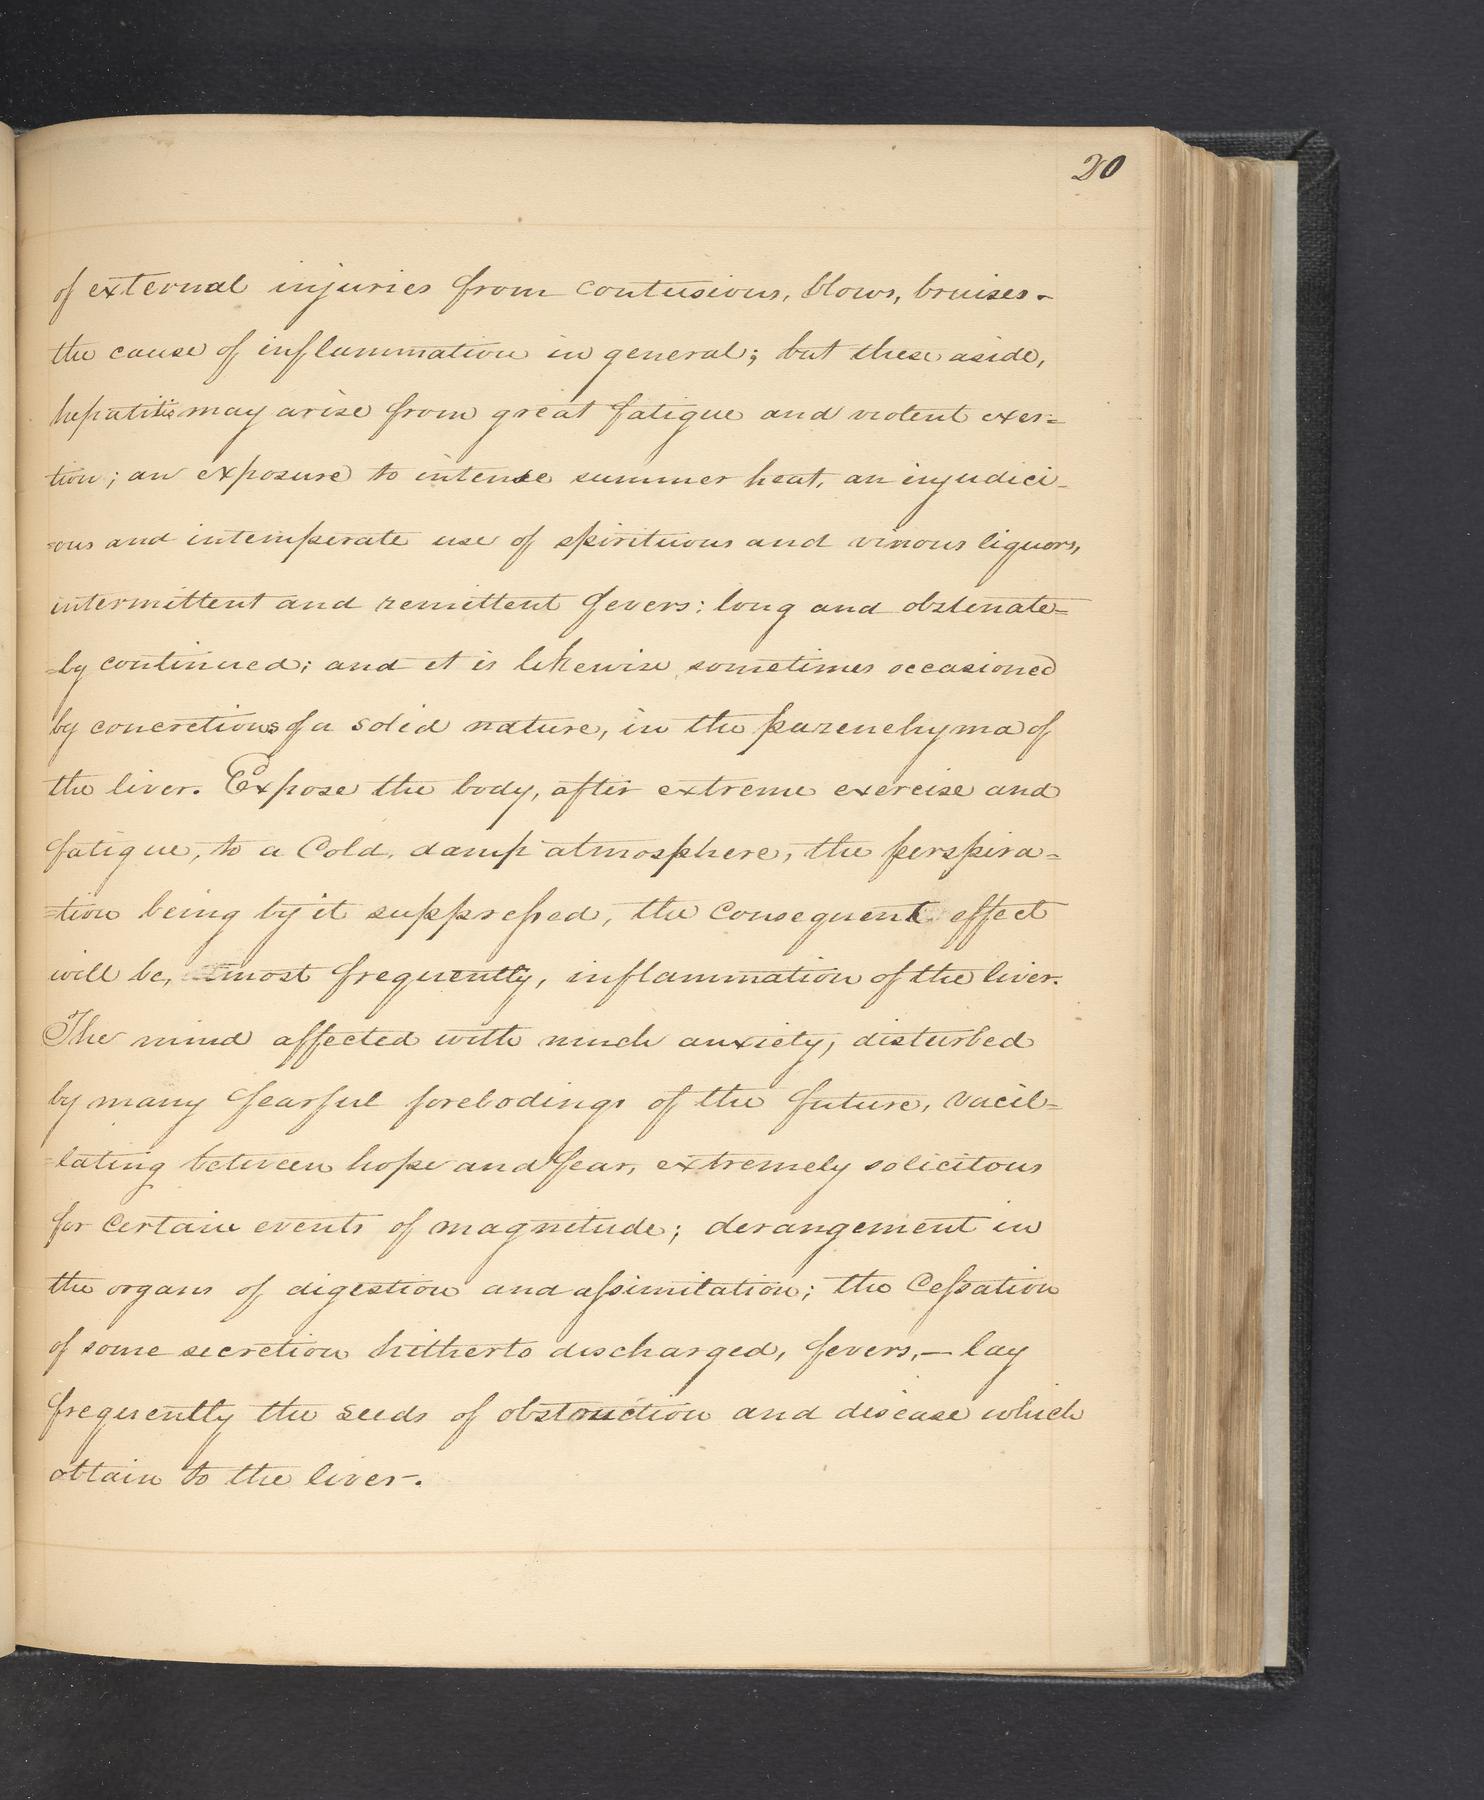 20
of external injuries from contusions, blows, bruises -
the cause of inflammation in general; but these aside,
hepatitis may arise from great fatigue and violent exer=
tion; an exposure to intense summer heat, an injudici-
-ous and intemperate use of spirituous and vinous liquors,
intermittent and remittent fevers: long and obstinate=
-ly continued; and it is likewise sometimes occasioned
by concretions of a solid nature, in the parenchyma of
the liver. Expose the body, after extreme exercise and
fatigue, to a Cold, damp atmosphere, the perspira=
=tion being by it suppreſsed, the Consequent effect
will be, most frequently, inflammation of the liver.
The mind affected with much anxiety, disturbed
by many fearful forebodings of the future, vacil=
=lating between hope and fear, extremely solicitous
for Certain events of magnitude; derangement in
the organs of digestion and aſsimilation; the Ceſsation
of some secretion hitherto discharged, fevers,— lay
frequently the seeds of obstruction and disease which
obtain to the liver-.